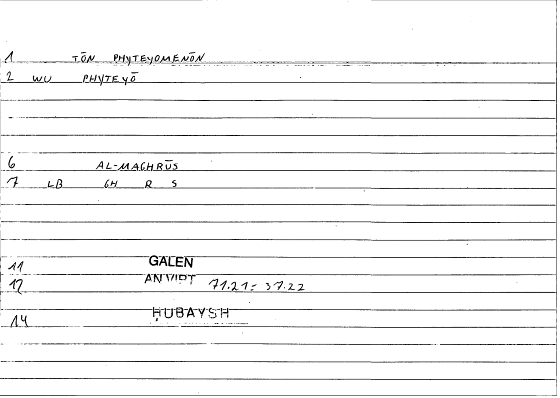 1 TŌN PHYTEYOMENŌN
2 WU PHYTEYŌ
6 AL-MAGHRŪS
7 LB GH R S
11 GALEN
12 AN VIRT 71.21 = 37.22
14 ḤUBAYSH